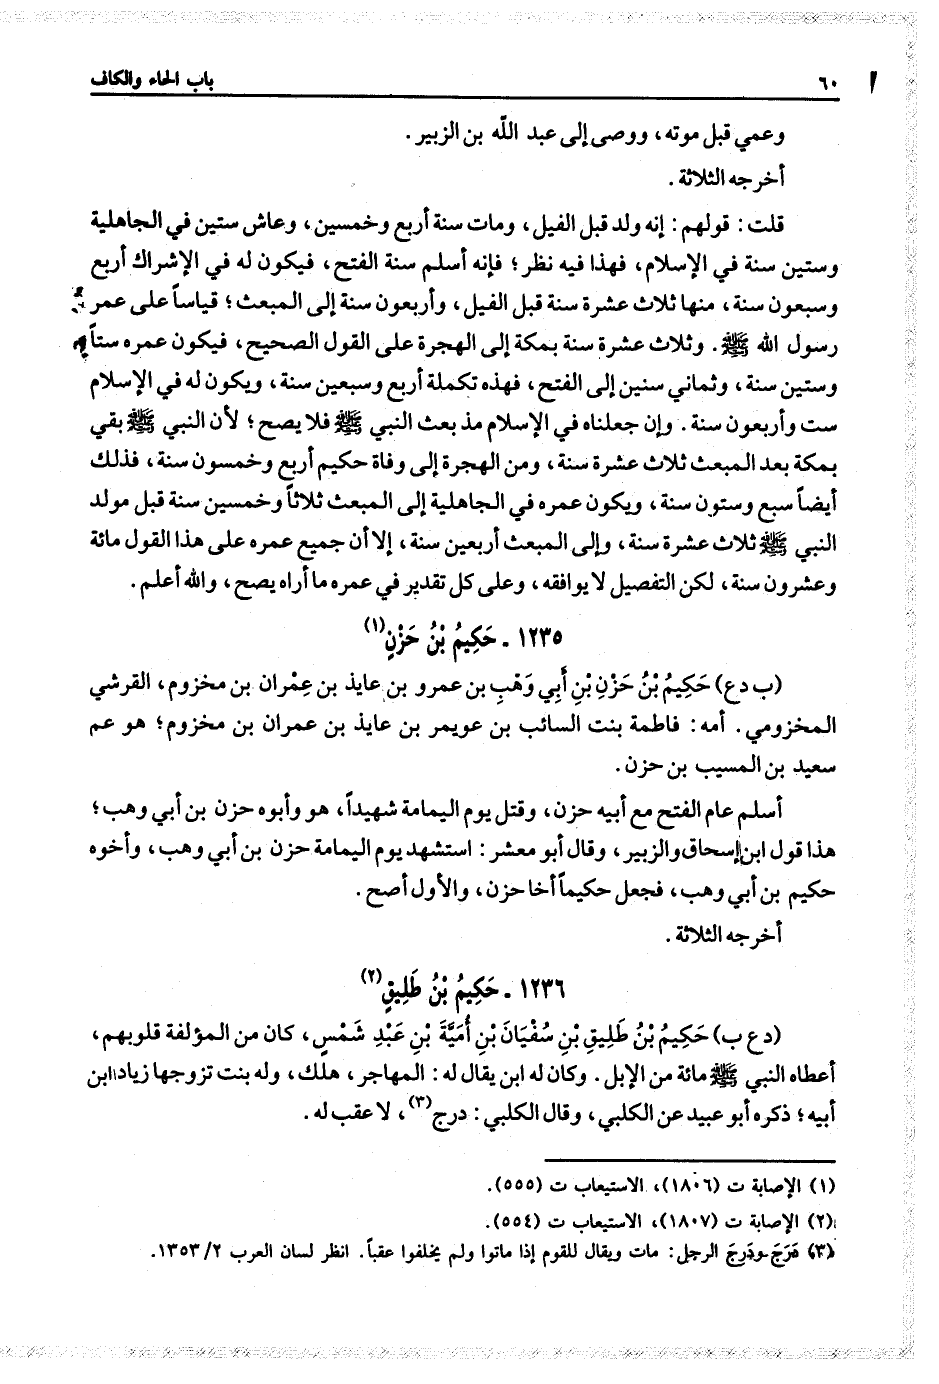 ٦٠ باب الحاء والكاف
وعمي قبل موته، ووصى إلى عبد الله بن الزبير.
أخرجه الثلاثة.
قلت: قولهم: إنه ولد قبل الفيل، ومات سنة أربع وخمسين، وعاش ستين في الجاهلية
وستين سنة في الإسلام، فهذا فيه نظر؛ فإنه أسلم سنة الفتح، فيكون له في الإشراك أربع
وسبعون سنة، منها ثلاث عشرة سنة قبل الفيل، وأربعون سنة إلى المبعث؛ قياساً على عمر
رسول الله ﷺ. وثلاث عشرة سنة بمكة إلى الهجرة على القول الصحيح، فيكون عمره ستاً
وستين سنة، وثماني سنين إلى الفتح، فهذه تكملة أربع وسبعين سنة، ويكون له في الإسلام
ست وأربعون سنة. وإن جعلناه في الإسلام مذ بعث النبي ﷺ فلا يصح؛ لأن النبي ﷺ بقي
بمكة بعد المبعث ثلاث عشرة سنة، ومن الهجرة إلى وفاة حكيم أربع وخمسون سنة، فذلك
أيضاً سبع وستون سنة، ويكون عمره في الجاهلية إلى المبعث ثلاثاً وخمسين سنة قبل مولد
النبي ﷺ ثلاث عشرة سنة، وإلى المبعث أربعين سنة، إلا أن جميع عمره على هذا القول مائة
وعشرون سنة، لكن التفصيل لا يوافقه، وعلى كل تقدير في عمره ما أراه يصح، والله أعلم.
١٢٣٥ ـ حَكِيمُ بْنُ حَزْنٍ(١)
(ب د ع) حَكِيمُ بْنُ حَزْنِ بْنِ أَبِي وَهْبِ بن عمرو بن عايذ بن عِمْران بن مخزوم، القرشي
المخزومي. أمه: فاطمة بنت السائب بن عويمر بن عايذ بن عمران بن مخزوم؛ هو عم
سعيد بن المسيب بن حزن.
أسلم عام الفتح مع أبيه حزن، وقتل يوم اليمامة شهيداً، هو وأبوه حزن بن أبي وهب؛
هذا قول ابن إسحاق والزبير، وقال أبو معشر: استشهد يوم اليمامة حزن بن أبي وهب، وأخوه
حكيم بن أبي وهب، فجعل حكيماً أخا حزن، والأول أصح.
أخرجه الثلاثة.
١٢٣٦ ـ حَكِيمُ بْنُ طَلِيقٍ(٢)
(د ع ب) حَكِيمُ بْنُ طَلِيقِ بْنِ سُفْيَانَ بْنِ أُمَيَّةَ بْنِ عَبْدِ شَمْسٍ، كان من المؤلفة قلوبهم،
أعطاه النبي ﷺ مائة من الإبل. وكان له ابن يقال له: المهاجر، هلك، وله بنت تزوجها زياد ابن
أبيه؛ ذكره أبو عبيد عن الكلبي، وقال الكلبي: درج(٣)، لا عقب له.
(١) الإصابة ت (١٨٠٦)، الاستيعاب ت (٥٥٥).
(٢) الإصابة ت (١٨٠٧)، الاستيعاب ت (٥٥٤).
(٣) دَرَجَ ودَرِجَ الرجل: مات ويقال للقوم إذا ماتوا ولم يخلفوا عقباً. انظر لسان العرب ٢/ ١٣٥٣.